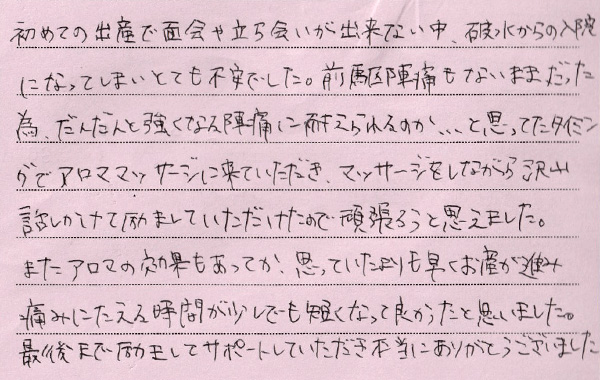 初めての出産で面会や立ち会いが出来ない中、破水からの入院
になってしまいとても不安でした。前駆陣痛もないままだった
為、だんだんと強くなる陣痛に耐えられるのか、、、と思ってたタイミン
グでアロママッサージに来ていただき、マッサージをしながら沢山
話しかけて励ましていただけたので頑張ろうと思えました。
またアロマの効果もあってか、思っていたよりも早くお産が進み
痛みにたえる時間が少しでも短くなって良かったと思いました。
最後まで励ましてサポートしていただき本当にありがとうございました